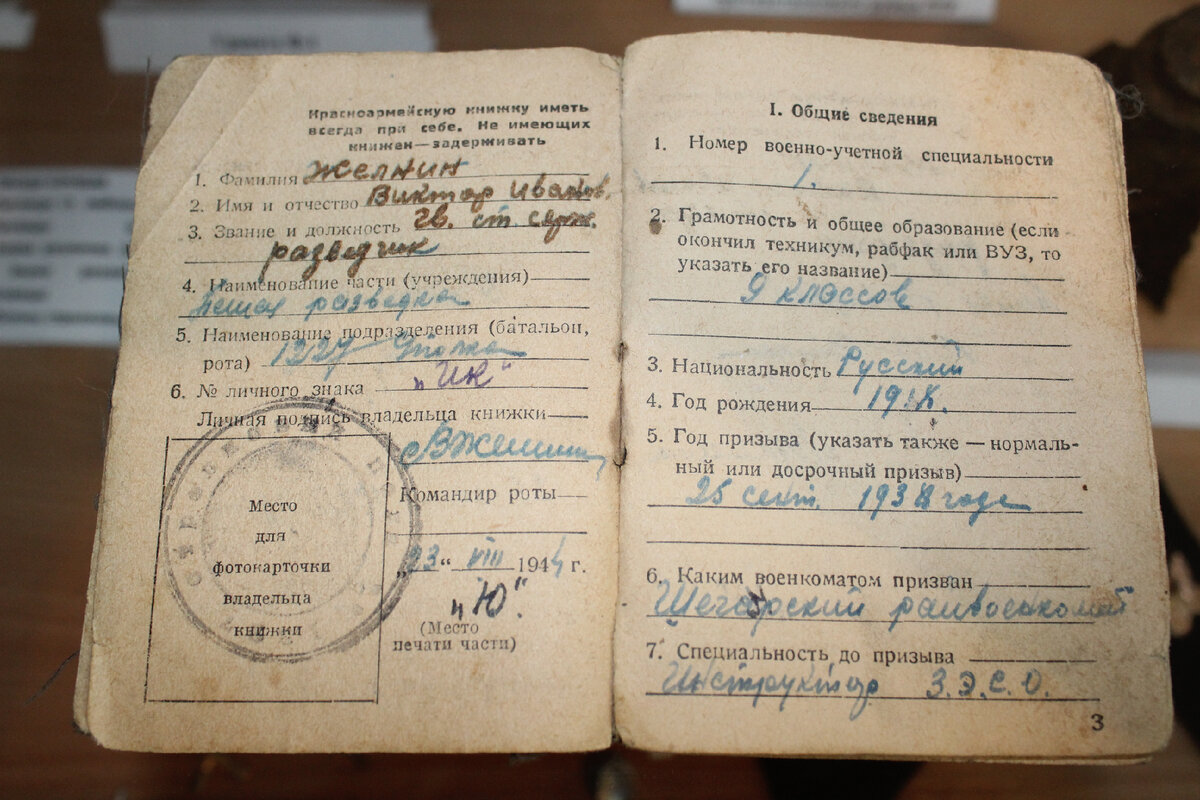 Красноармейскую книжку иметь
всегда при себе. Не имеющих
книжек—задерживать
1. Фамилия Желнин
2. Имя и отчество Виктор Иванов.
3. Звание и должность гв. ст. серж.
разведчик
4. Наименование части (учреждения)
пешая разведка
5. Наименование подразделения (батальон,
рота) 1227 полка
6. № личного знака „ИК“
Личная подпись владельца книжки
Командир роты
„23“ VIII 1944 г.
„Ю“.
(Место
печати части)
Место
для
фотокарточки
владельца
книжки
I. Общие сведения
1. Номер военно-учетной специальности
1.
2. Грамотность и общее образование (если
окончил техникум, рабфак или ВУЗ, то
указать его название)
9 классов
3. Национальность Русский
4. Год рождения 1918.
5. Год призыва (указать также — нормаль-
ный или досрочный призыв)
25 сент. 1938 года
6. Каким военкоматом призван
Шегарский райвоенкомат
7. Специальность до призыва
Инструктор З.Э.С.О.
3